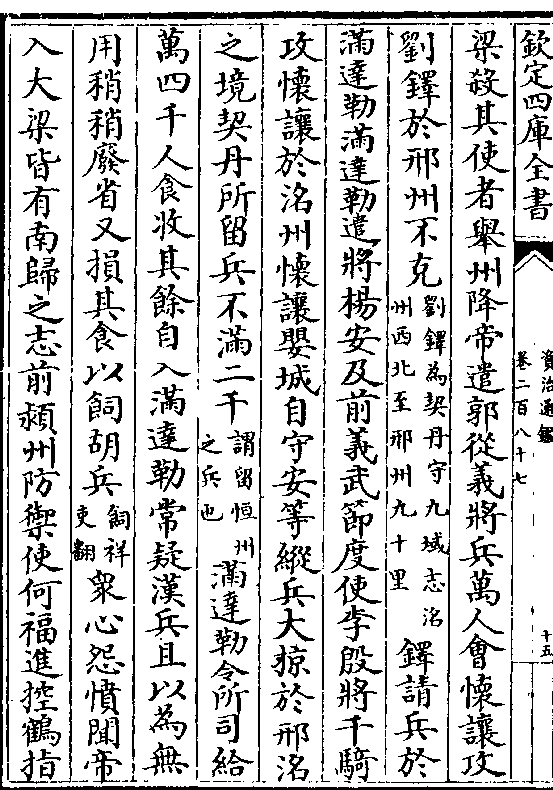 欽定四庫全書
資治通鑑
卷二百八十七
十五
梁殺其使者舉州降帝遣郭從義將兵萬人會懷讓攻
劉鐸於邢州不克劉鐸為契丹守九域志洺州西北至邢州九十里鐸請兵於
滿達勒滿達勒遣將楊安及前義武節度使李殷將千騎
攻懷讓於洺州懷讓嬰城自守安等縱兵大掠於邢洺
之境契丹所留兵不滿二千謂留恒州之兵也滿達勒令所司給
萬四千人食收其餘自入滿達勒常疑漢兵且以為無
用稍稍廢省又損其食以飼胡兵飼祥吏翻衆心怨憤聞帝
入大梁皆有南歸之志前潁州防禦使何福進控鶴指